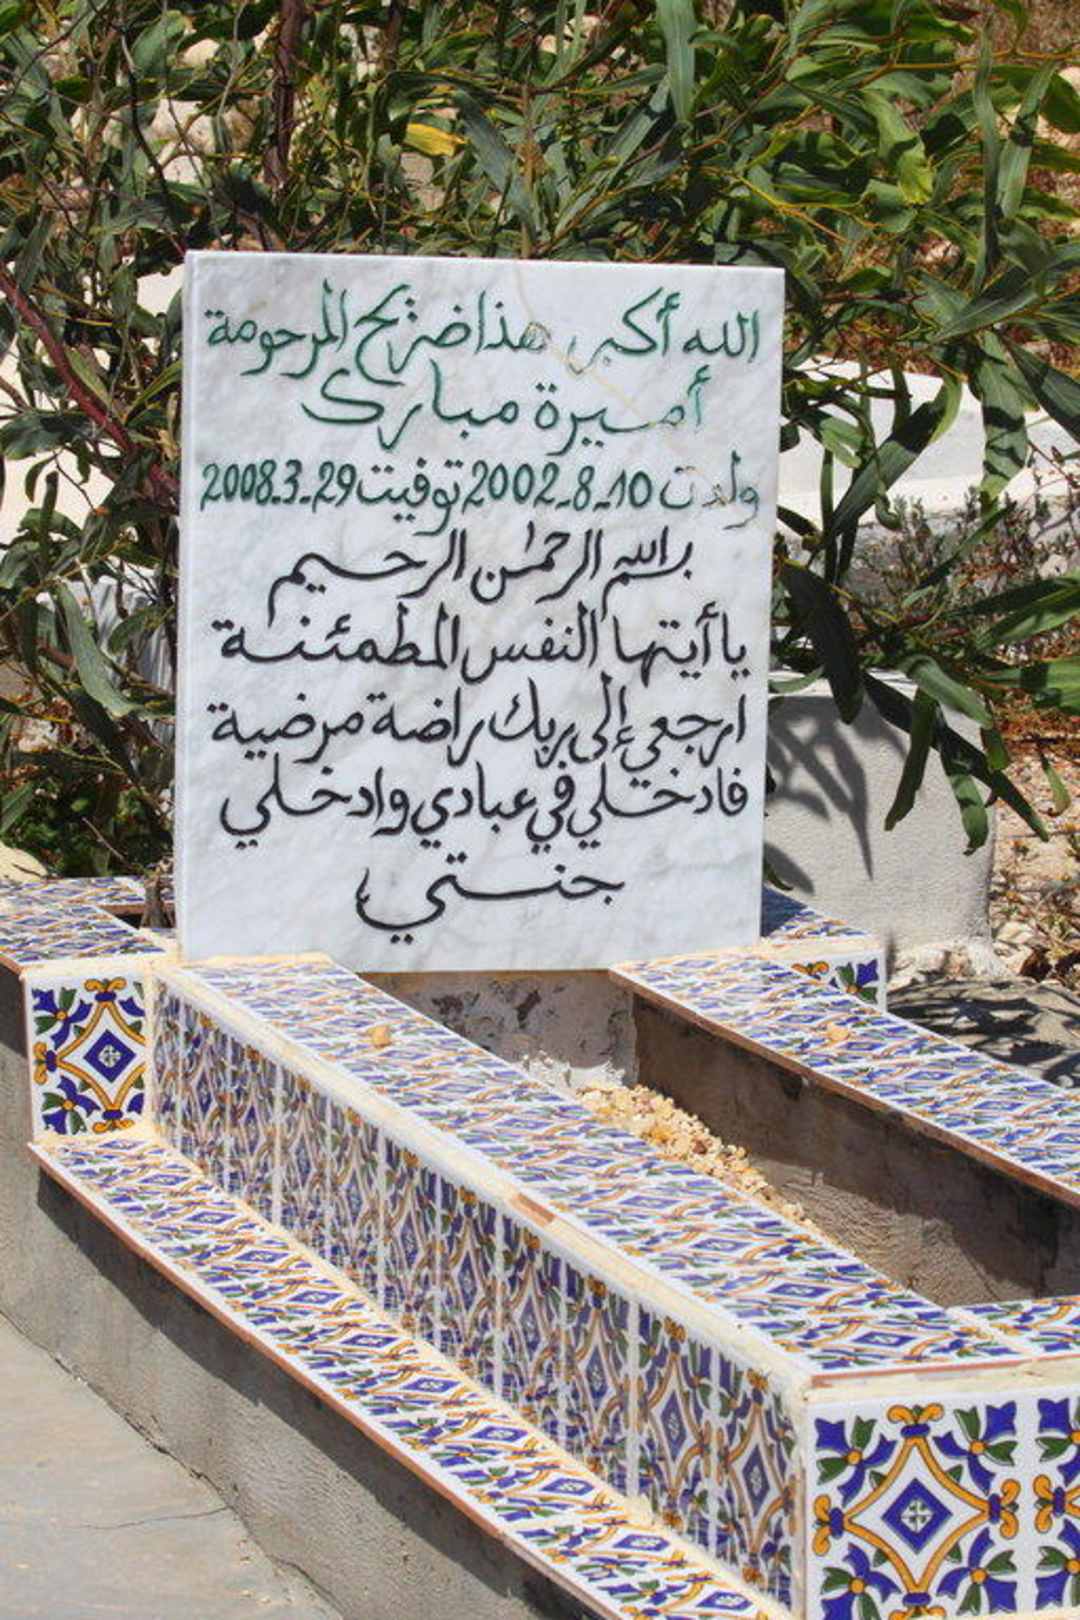 الله أكبر هذا ضريح المرحومة
أميرة مبارك
ولدت 10-8-2002 توفيت 29-3-2008
بسم الله الرحمٰن الرحيم
يا أيتها النفس المطمئنة
ارجعي إلى ربك راضة مرضية
فادخلي في عبادي وادخلي
جنتي